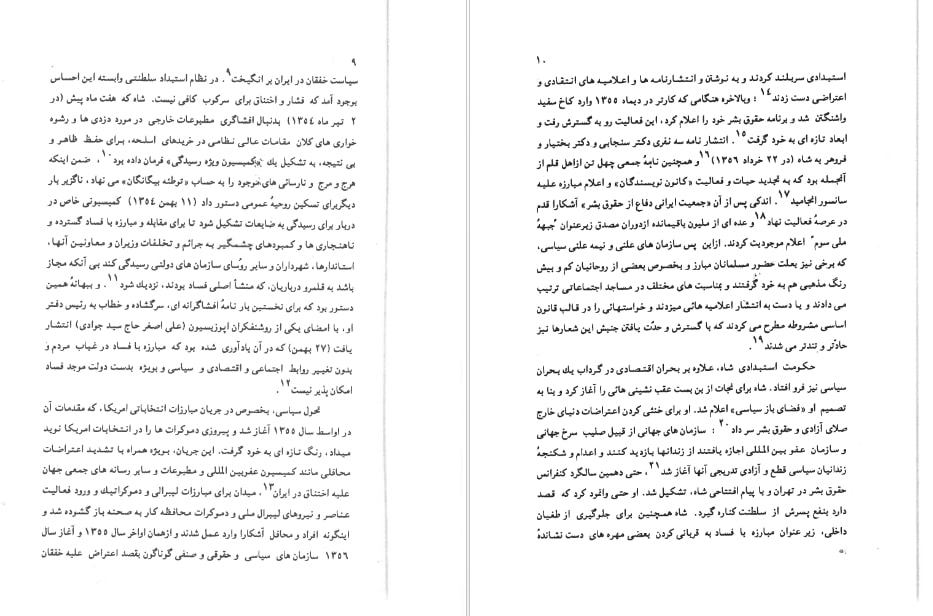 ۹
سیاست خفقان در ایران بر انگیخت۹. در نظام استبداد سلطنتی وابسته این احساس
بوجود آمد که فشار و اختناق برای سرکوب کافی نیست. شاه که هفت ماه پیش (در
۲ تیر ماه ۱۳۵۴) بدنبال افشاگری مطبوعات خارجی در مورد دزدی ها و رشوه
خواری های کلان مقامات عالی نظامی در خریدهای اسلحه، برای حفظ ظاهر و
بی نتیجه، به تشکیل یك «کمیسیون ویژه رسیدگی» فرمان داده بود۱۰، ضمن اینکه
هرج و مرج و نارسائی های موجود را به حساب «توطئه بیگانگان» می نهاد، ناگزیر بار
دیگربرای تسکین روحیهٔ عمومی دستور داد (۱۱ بهمن ۱۳۵۴) کمیسیونی خاص در
دربار برای رسیدگی به ضایعات تشکیل شود تا برای مقابله و مبارزه با فساد گسترده و
ناهنجاری ها و کمبودهای چشمگیر به جرائم و تخلفات وزیران و معاونین آنها،
استاندارها، شهرداران و سایر روٴسای سازمان های دولتی رسیدگی کند بی آنکه مجاز
باشد به قلمرو درباریان، که منشأ اصلی فساد بودند، نزدیك شود۱۱. و ببهانهٔ همین
دستور بود که برای نخستین بار نامهٔ افشاگرانه ای، سرگشاده و خطاب به رئیس دفتر
او، با امضای یکی از روشنفکران اپوزیسیون (علی اصغر حاج سید جوادی) انتشار
یافت (۲۷ بهمن) که در آن یادآوری شده بود که مبارزه با فساد در غیاب مردم و
بدون تغییر روابط اجتماعی و اقتصادی و سیاسی و بویژه بدست دولت موجد فساد
امکان پذیر نیست۱۲.
تحول سیاسی، بخصوص در جریان مبارزات انتخاباتی امریکا، که مقدمات آن
در اواسط سال ۱۳۵۵ آغاز شد و پیروزی دموکرات ها را در انتخابات امریکا نوید
میداد، رنگ تازه ای به خود گرفت. این جریان، بویژه همراه با تشدید اعتراضات
محافلی مانند کمیسیون عفوبین المللی و مطبوعات و سایر رسانه های جمعی جهان
علیه اختناق در ایران۱۳، میدان برای مبارزات لیبرالی و دموکراتیك و ورود فعالیت
عناصر و نیروهای لیبرال ملی و دموکرات محافظه کار به صحنه باز گشوده شد و
اینگونه افراد و محافل آشکارا وارد عمل شدند و ازهمان اواخر سال ۱۳۵۵ و آغاز سال
۱۳۵۶ سازمان های سیاسی و حقوقی و صنفی گوناگون بقصد اعتراض علیه خفقان
۱۰
استبدادی سربلند کردند و به نوشتن و انتشارنامه ها و اعلامیه های انتقادی و
اعتراضی دست زدند۱۴؛ وبالاخره هنگامی که کارتر در دیماه ۱۳۵۵ وارد کاخ سفید
واشنگتن شد و برنامه حقوق بشر خود را اعلام کرد، این فعالیت رو به گسترش رفت و
ابعاد تازه ای به خود گرفت۱۵. انتشار نامه سه نفری دکتر سنجابی و دکتر بختیار و
فروهر به شاه (در ۲۲ خرداد ۱۳۵۶)۱۶ و همچنین نامهٔ جمعی چهل تن ازاهل قلم از
آنجمله بود که به تجدید حیات و فعالیت «کانون نویسندگان» و اعلام مبارزه علیه
سانسور انجامید۱۷. اندکی پس از آن «جمعیت ایرانی دفاع از حقوق بشر» آشکارا قدم
در عرصهٔ فعالیت نهاد۱۸ و عده ای از ملیون باقیمانده ازدوران مصدق زیرعنوان "جبههٔ
ملی سوم" اعلام موجودیت کردند. ازاین پس سازمان های علنی و نیمه علنی سیاسی،
که برخی نیز بعلت حضور مسلمانان مبارز و بخصوص بعضی از روحانیان کم و بیش
رنگ مذهبی هم به خود گرفتند و بمناسبت های مختلف در مساجد اجتماعاتی ترتیب
می دادند و یا دست به انتشار اعلامیه هائی میزدند و خواستهائی را در قالب قانون
اساسی مشروطه مطرح می کردند که با گسترش و حدّت یافتن جنبش این شعارها نیز
حادّتر و تندتر می شدند۱۹.
حکومت استبدادی شاه، علاوه بر بحران اقتصادی در گرداب یك بحران
سیاسی نیز فرو افتاد. شاه برای نجات از بن بست عقب نشینی هائی را آغاز کرد و بنا به
تصمیم او «فضای باز سیاسی» اعلام شد. او برای خنثی کردن اعتراضات دنیای خارج
صلای آزادی و حقوق بشر سر داد۲۰: سازمان های جهانی از قبیل صلیب سرخ جهانی
و سازمان عفو بین المللی اجازه یافتند از زندانها بازدید کنند و اعدام و شکنجهٔ
زندانیان سیاسی قطع و آزادی تدریجی آنها آغاز شد۲۱، حتی دهمین سالگرد کنفرانس
حقوق بشر در تهران و با پیام افتتاحی شاه، تشکیل شد. او حتی وانمود کرد که قصد
دارد بنفع پسرش از سلطنت کناره گیرد. شاه همچنین برای جلوگیری از طغیان
داخلی، زیر عنوان مبارزه با فساد به قربانی کردن بعضی مهره های دست نشاندهٔ